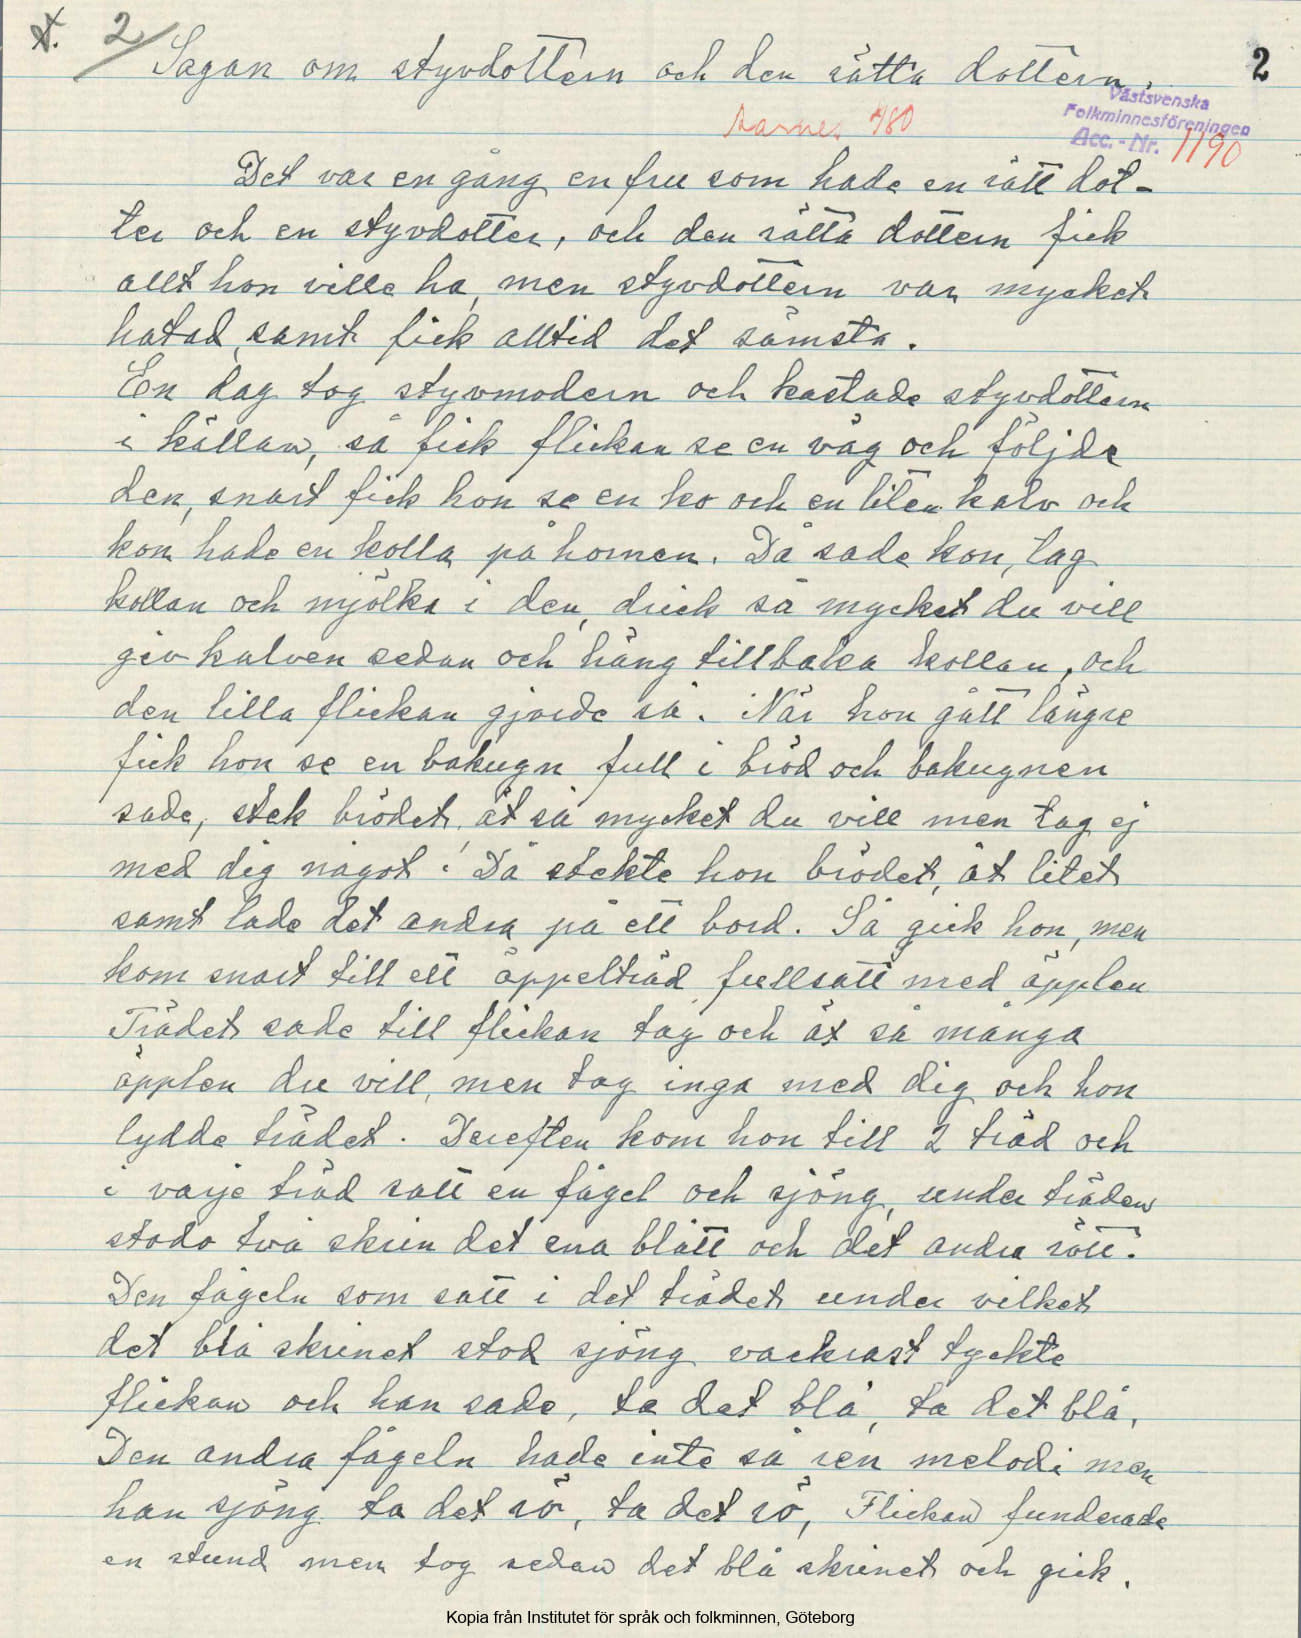 A. 2 Sagan om styvdottern och den rätta dottern. 2
Aarne 480
Västsvenska
Folkminnesföreningen
Acc.-Nr. 1190
Det var en gång en fru som hade en rätt dot-
ter och en styvdotter, och den rätta dottern fick
allt hon ville ha, men styvdottern var mycket
hatad, samt fick alltid det sämsta.
En dag tog styvmodern och kastade styvdottern
i källan, så fick flickan se en väg och följde
den, snart fick hon se en ko och en liten kalv och
kon hade en kolla på hornen. Då sade kon, tag
kollan och mjölka i den, drick så mycket du vill
giv kalven sedan och häng tillbaka kollan, och
den lilla flickan gjorde så. När hon gått längre
fick hon se en bakugn full i bröd och bakugnen
sade, stek brödet, ät så mycket du vill men tag ej
med dig något! Då stekte hon brödet, åt litet
samt lade det andra på ett bord. Så gick hon, men
kom snart till ett äppelträd fullsatt med äpplen
Trädet sade till flickan tag och ät så många
äpplen du vill, men tag inga med dig och hon
lydde trädet. Derefter kom hon till 2 träd och
i varje träd satt en fågel och sjöng, under träden
stodo två skrin det ena blått och det andra rött.
Den fågeln som satt i det trädet under vilket
det blå skrinet stod sjöng vackrast tyckte
flickan och han sade, ta det blå, ta det blå,
Den andra fågeln hade inte så ren melodi men
han sjöng ta det rö, ta det rö, Flickan funderade
en stund men tog sedan det blå skrinet och gick.
Kopia från Institutet för språk och folkminnen, Göteborg